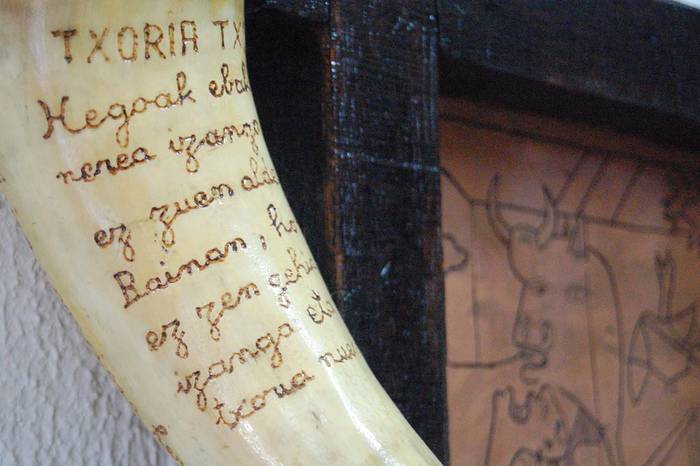 TXORIA TX
Hegoak eba
nerea izango
ez zuen alde
Bainan, ho
ez zen gehi
izanga eta
txoria nue